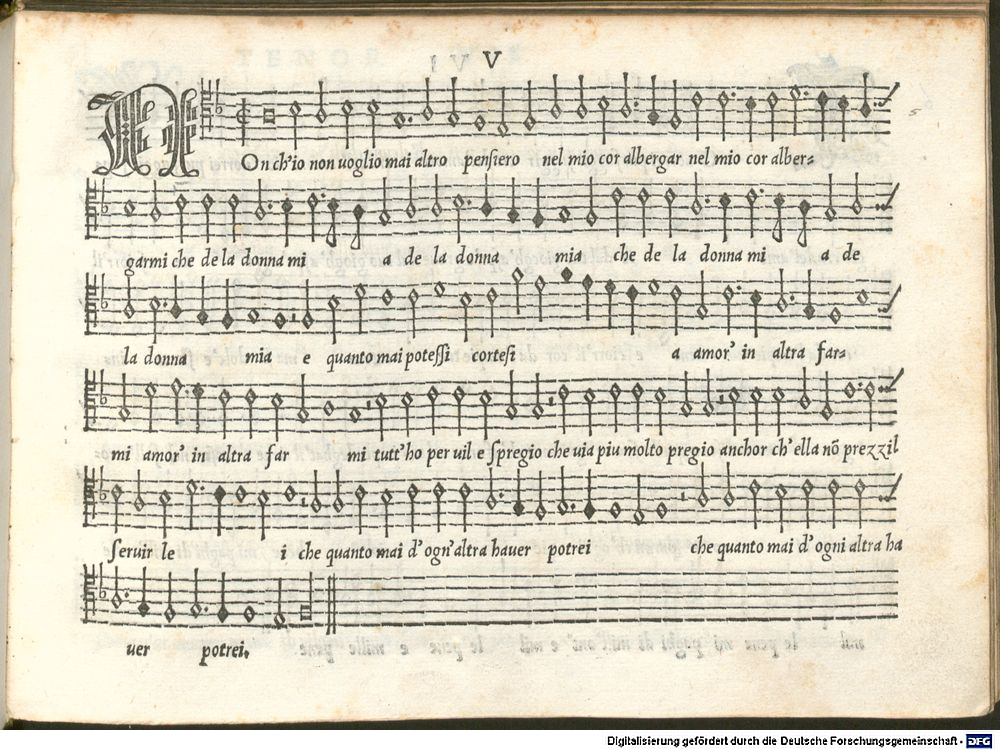 V
NOn ch'io non uoglio mai altro pensiero nel mio cor albergar nel mio cor alber=
garmi che de la donna mi a de la donna mia che de la donna mi a de
la donna mia e quanto mai potessi cortesi a amor' in altra far=
mi amor' in altra far mi tutt'ho per uil e spregio che uia piu molto pregio anchor ch'ella nõ prezzil
seruir le i che quanto mai d'ogn'altra hauer potrei che quanto mai d'ogni altra ha
uer potrei.
Digitalisierung gefördert durch die Deutsche Forschungsgemeinschaft - DFG